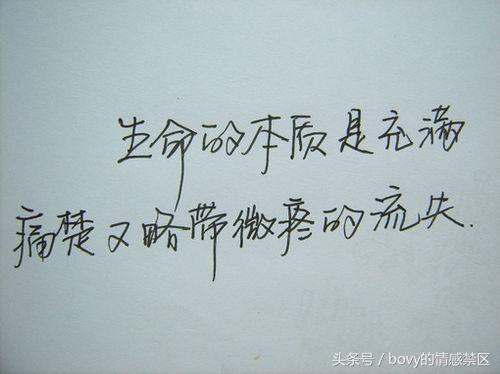 生命的本质是充满
痛楚又略带微疼的流失.
头条号 / bovy的情感禁区